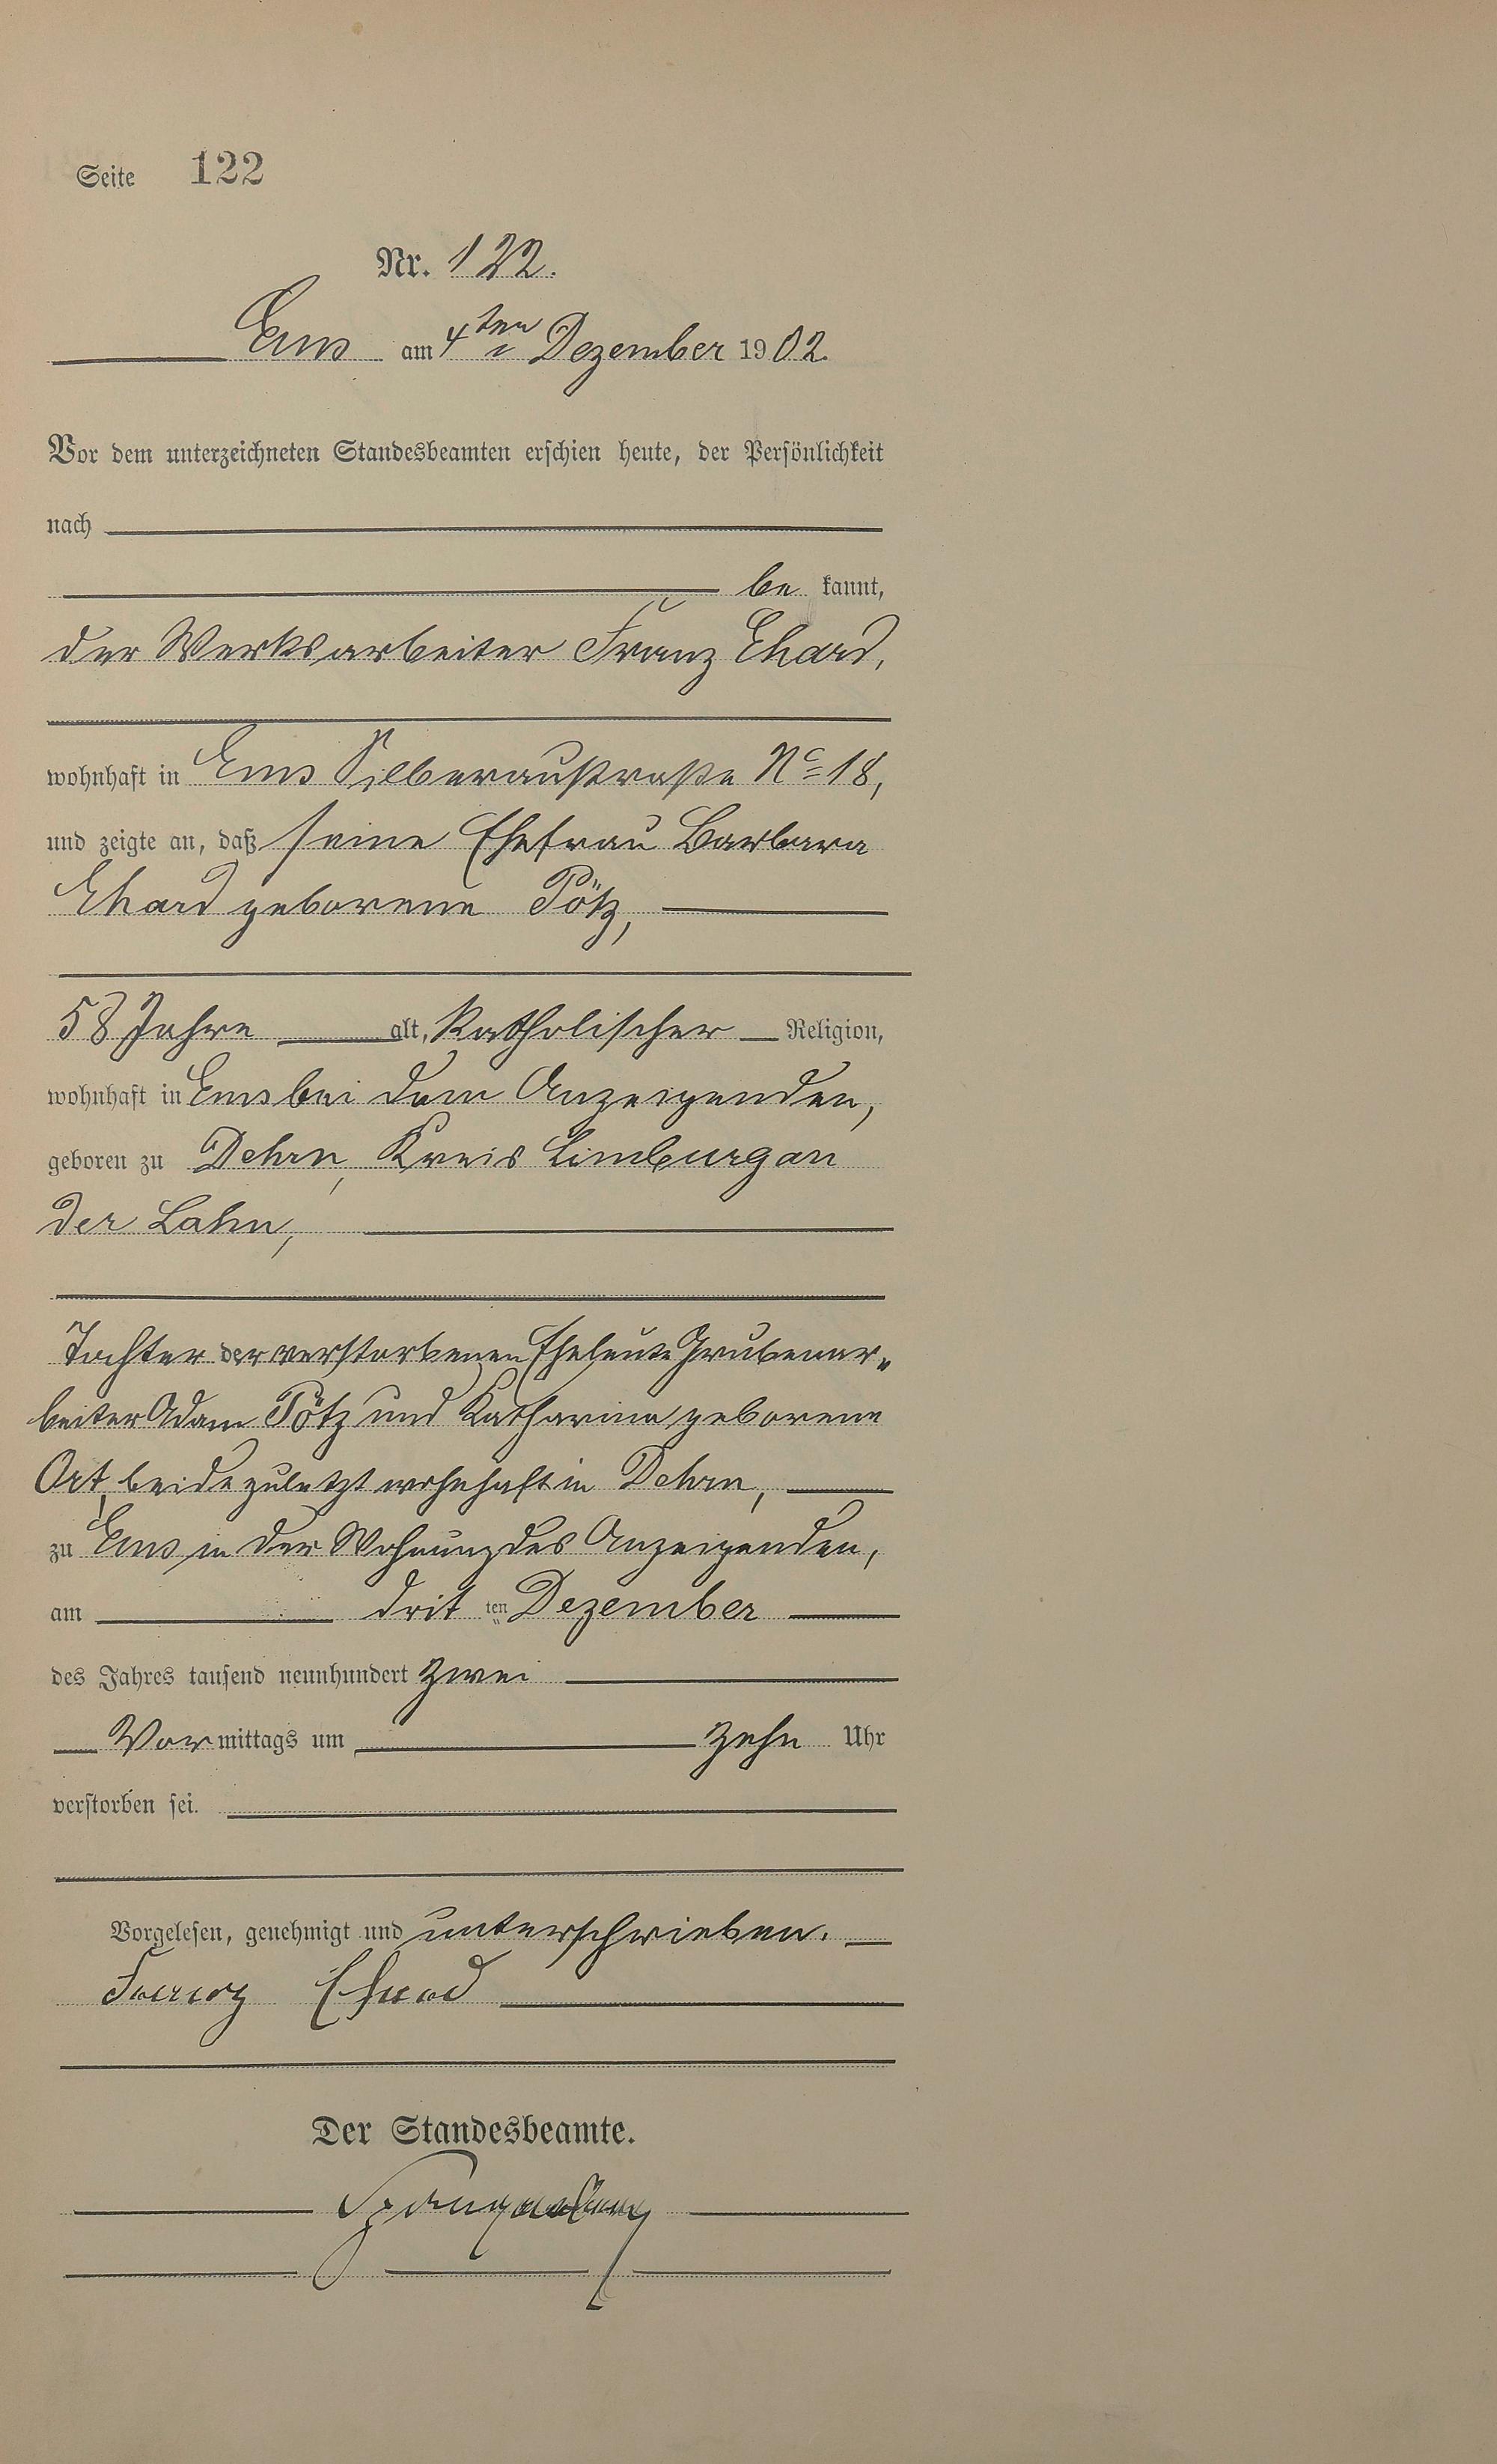 Seite 122
Nr. 122.
Ems am 4ten Dezember 1902.
Vor dem unterzeichneten Standesbeamten erschien heute, der Persönlichkeit
nach
be kannt,
der Werksarbeiter Franz Ehard,
wohnhaft in Ems Silberaustraße No 18,
und zeigte an, daß seine Ehefrau Barbara
Ehard geborene Pötz,
58 Jahre alt, katholischer Religion,
wohnhaft in Ems bei dem Anzeigenden,
geboren zu Dehrn, Kreis Limburg an
der Lahn,
Tochter der verstorbenen Eheleute Grubenar„
beiter Adam Pötz und Katharina geborene
Ort, beide zuletzt wohnhaft in Dehrn,
zu Ems in der Wohnung des Anzeigenden,
am dritten Dezember
des Jahres tausend neunhundert zwei
Vormittags um zehn Uhr
verstorben sei.
Vorgelesen, genehmigt und unterschrieben.
Franz Ehard
Der Standesbeamte.